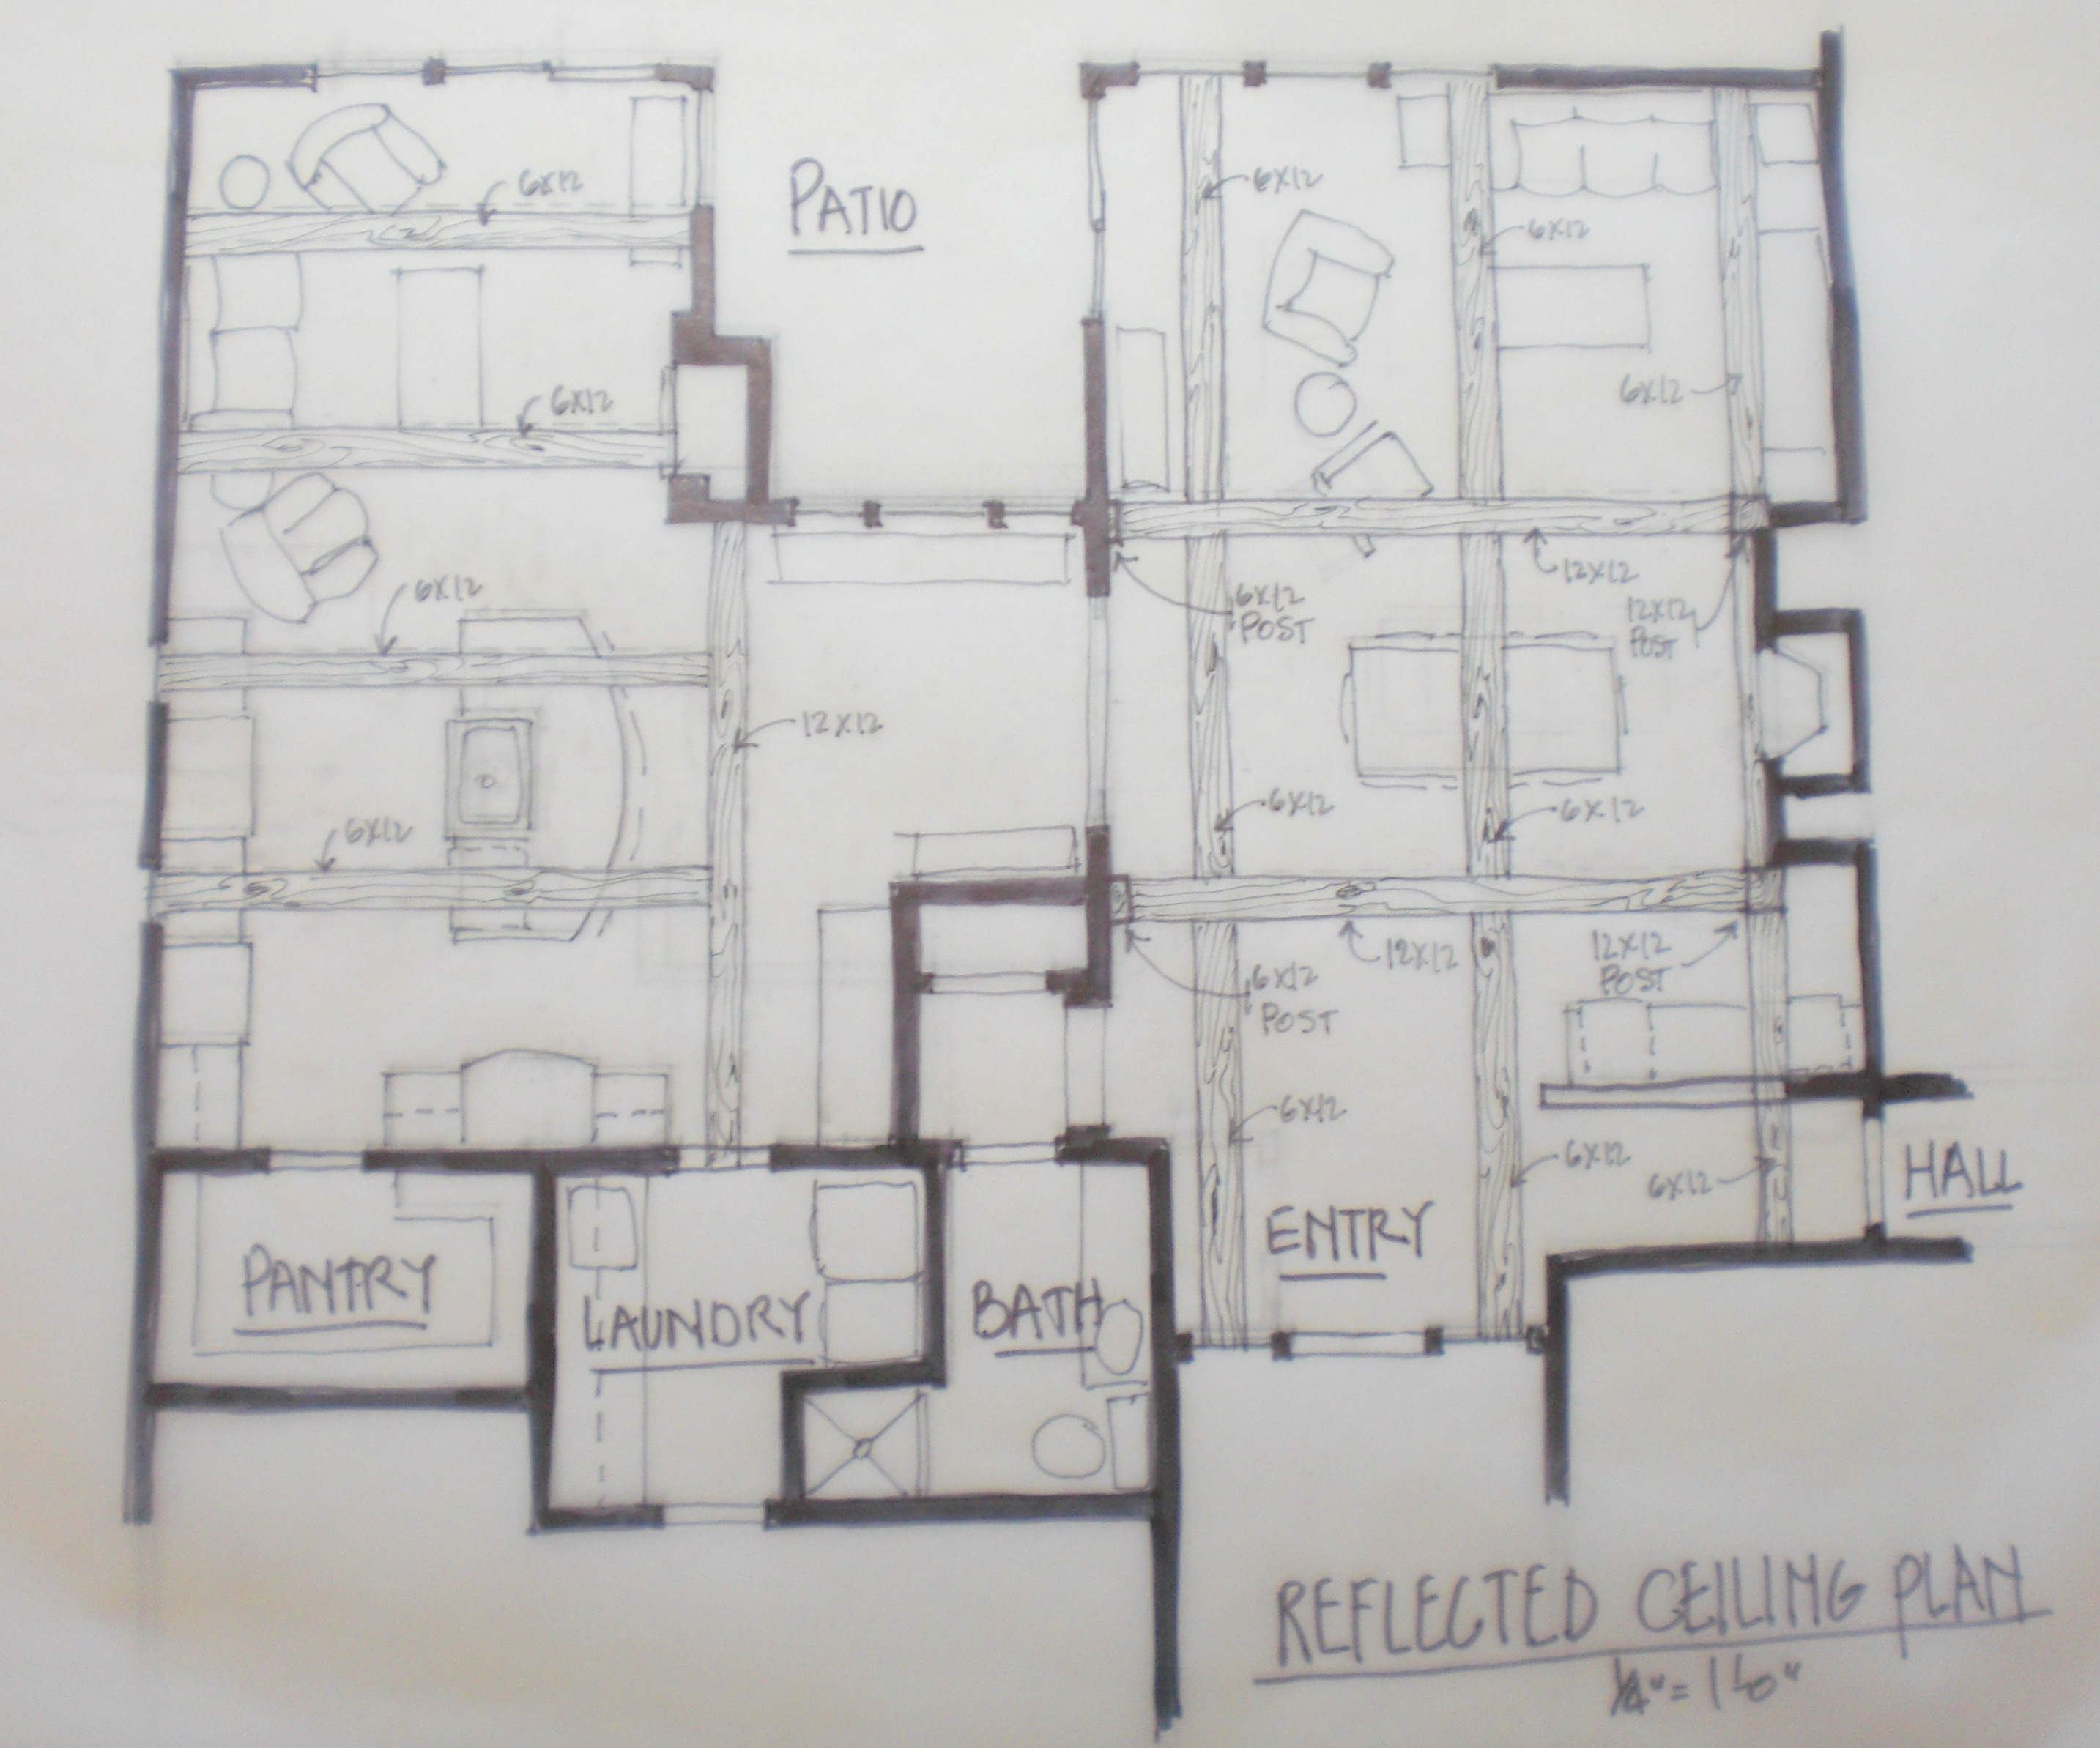 PATIO
6X12
6X12
6X12
6X12
6X12
6X12
12X12
6X12
POST
12X12
POST
6X12
12X12
6X12
6X12
6X12
12X12
12X12
POST
6X12
POST
6X12
6X12
6X12
HALL
ENTRY
PANTRY
LAUNDRY
BATH
REFLECTED CEILING PLAN
1/4" = 1'-0"